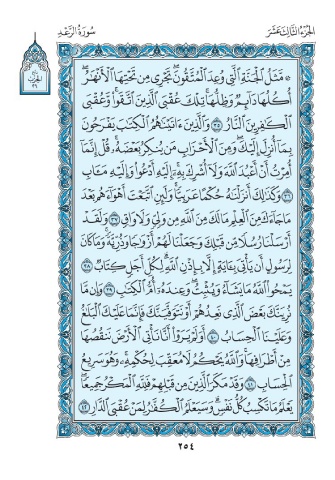 الجزء الثالث عشر
سورة الرعد
۞ مَّثَلُ ٱلْجَنَّةِ ٱلَّتِى وُعِدَ ٱلْمُتَّقُونَ ۖ تَجْرِى مِن تَحْتِهَا ٱلْأَنْهَـٰرُ ۖ
أُكُلُهَا دَآئِمٌ وَظِلُّهَا ۚ تِلْكَ عُقْبَى ٱلَّذِينَ ٱتَّقَوا۟ ۖ وَّعُقْبَى
ٱلْكَـٰفِرِينَ ٱلنَّارُ ٣٥ وَٱلَّذِينَ ءَاتَيْنَـٰهُمُ ٱلْكِتَـٰبَ يَفْرَحُونَ
بِمَآ أُنزِلَ إِلَيْكَ ۖ وَمِنَ ٱلْأَحْزَابِ مَن يُنكِرُ بَعْضَهُۥ ۚ قُلْ إِنَّمَآ
أُمِرْتُ أَنْ أَعْبُدَ ٱللَّهَ وَلَآ أُشْرِكَ بِهِۦٓ ۚ إِلَيْهِ أَدْعُوا۟ وَإِلَيْهِ مَـَٔابِ
٣٦ وَكَذَٰلِكَ أَنزَلْنَـٰهُ حُكْمًا عَرَبِيًّا ۚ وَلَئِنِ ٱتَّبَعْتَ أَهْوَآءَهُم بَعْدَ
مَا جَآءَكَ مِنَ ٱلْعِلْمِ مَا لَكَ مِنَ ٱللَّهِ مِن وَلِىٍّ وَلَا وَاقٍ ٣٧ وَلَقَدْ
أَرْسَلْنَا رُسُلًا مِّن قَبْلِكَ وَجَعَلْنَا لَهُمْ أَزْوَٰجًا وَذُرِّيَّةً ۚ وَمَا كَانَ
لِرَسُولٍ أَن يَأْتِىَ بِـَٔايَةٍ إِلَّا بِإِذْنِ ٱللَّهِ ۗ لِكُلِّ أَجَلٍ كِتَابٌ ٣٨
يَمْحُوا۟ ٱللَّهُ مَا يَشَآءُ وَيُثْبِتُ ۖ وَعِندَهُۥٓ أُمُّ ٱلْكِتَـٰبِ ٣٩ وَإِن مَّا
نُرِيَنَّكَ بَعْضَ ٱلَّذِى نَعِدُهُمْ أَوْ نَتَوَفَّيَنَّكَ فَإِنَّمَا عَلَيْكَ ٱلْبَلَـٰغُ
وَعَلَيْنَا ٱلْحِسَابُ ٤٠ أَوَلَمْ يَرَوْا۟ أَنَّا نَأْتِى ٱلْأَرْضَ نَنقُصُهَا
مِنْ أَطْرَافِهَا ۚ وَٱللَّهُ يَحْكُمُ لَا مُعَقِّبَ لِحُكْمِهِۦ ۚ وَهُوَ سَرِيعُ
ٱلْحِسَابِ ٤١ وَقَدْ مَكَرَ ٱلَّذِينَ مِن قَبْلِهِمْ فَلِلَّهِ ٱلْمَكْرُ جَمِيعًا ۖ
يَعْلَمُ مَا تَكْسِبُ كُلُّ نَفْسٍ ۗ وَسَيَعْلَمُ ٱلْكُفَّـٰرُ لِمَنْ عُقْبَى ٱلدَّارِ ٤٢
٢٥٤